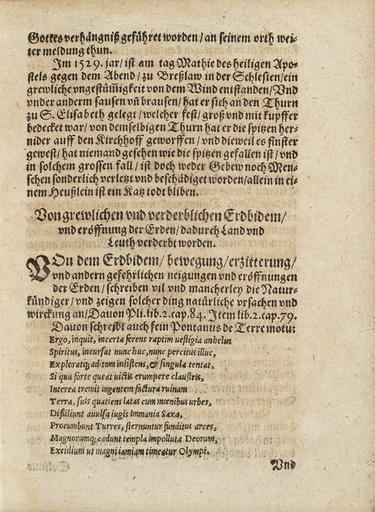 Gottes verhängniß geführet worden / an seinem orth wei-
ter meldung thun.
Im 1529. jar / ist am tag Mathie des heiligen Apo-
stels gegen dem Abend / zu Breßlaw in der Schlesien / ein
grewliche vngestümigkeit von dem Wind enstanden / Vnd
vnder anderm sausen vñ brausen / hat er sich an den Thurn
zu S. Elisabeth gelegt / welcher fest / groß vnd mit kupffer
bedecket war / von demselbigen Thurn hat er die spitzen her-
nider auff den Kirchhoff geworffen / vnd dieweil es finster
gewest / hat niemand gesehen wie die spitzen gefallen ist / vnd
in solchem grossen fall / ist doch weder Gebew noch Men-
schen sonderlich verletzt vnd beschädiget worden / allein in ei-
nem Heußlein ist ein Katz todt bliben.
Von grewlichen vnd verderblichen Erdbidem /
vnd eröffnung der Erden / dadurch Land vnd
Leuth verderbt worden.
VOn dem Erdbidem / bewegung / erzitterung /
vnd andern gefehrlichen neigungen vnd eröffnungen
der Erden / schreiben vil vnd mancherley die Natur-
kündiger / vnd zeigen solcher ding natürliche vrsachen vnd
wirckung an / Dauon Pli. lib. 2. cap. 84. Item lib. 2. cap. 79.
Dauon schreibt auch fein Pontanus de Terræ motu:
Ergo, inquit, incerta ferens raptim vestigia anhelus
Spiritus, incursat nunc huc, nunc percitus illuc,
Exploratq; aditum insistens, & singula tentat,
Si qua forte queat victis erumpere claustris,
Interea tremit ingentem factura ruinam
Terra, suis quatiens latas cum mœnibus vrbes,
Dissiliunt auulsa iugis immania Saxa,
Procumbunt Turres, sternuntur funditus arces,
Magnorumq; cadunt templa impolluta Deorum,
Excidium vt magni iamiam timeatur Olympi.
Vnd